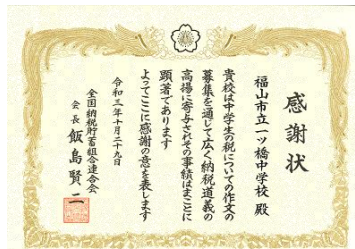 感謝状
福山市立一ツ橋中学校 殿
貴校は中学生の税についての作文の
募集を通して広く納税道義の
高揚に寄与されその事績はまことに
顕著であります
よってここに感謝の意を表します
令和三年十月二十九日
全国納税貯蓄組合連合会
会長 飯島賢二